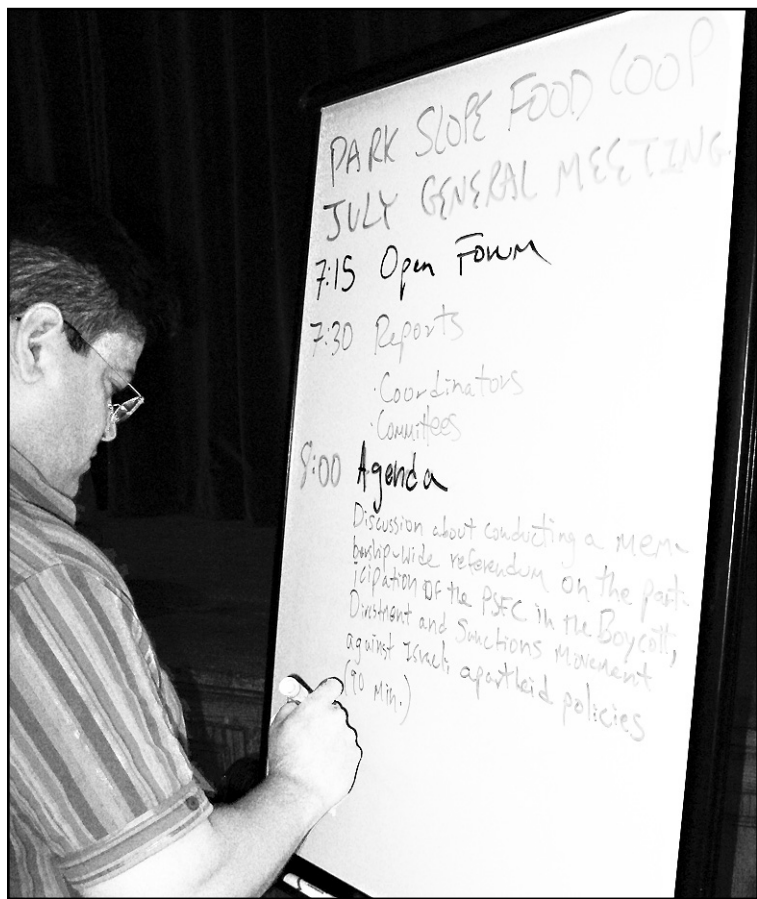 PARK SLOPE FOOD COOP
JULY GENERAL MEETING
7:15 Open Forum
7:30 Reports
· Coordinators
· Committees
8:00 Agenda
Discussion about conducting a mem-
bership-wide referendum on the part-
icipation of the PSFC in the Boycott,
Divestment and Sanctions Movement
against Israel's apartheid policies
(90 min.)